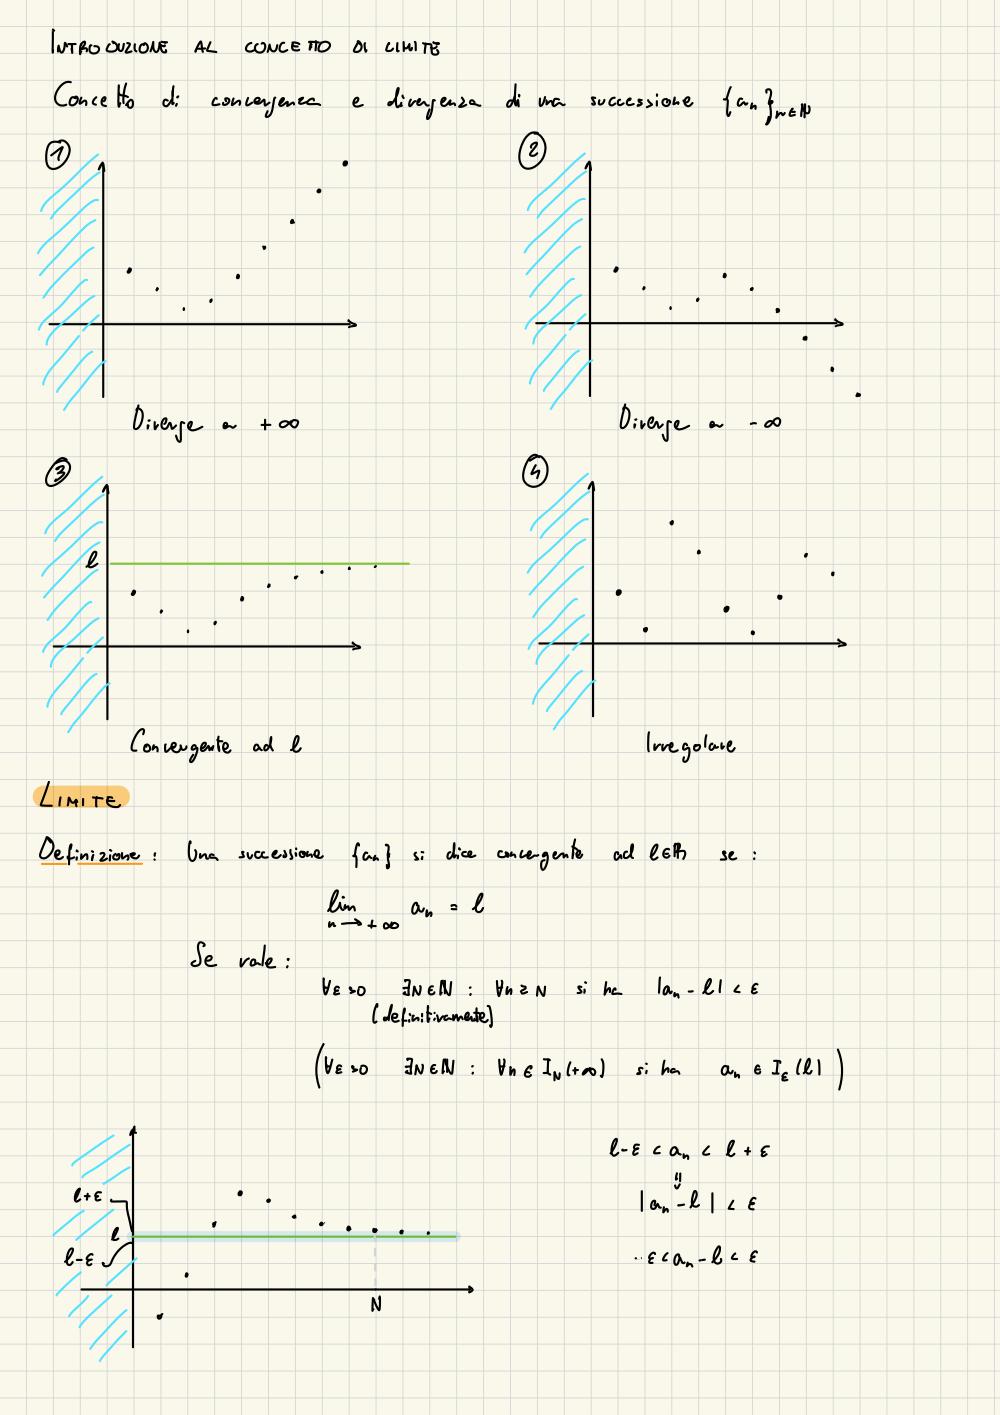 INTRODUZIONE AL CONCETTO DI LIMITE
Concetto di convergenza e divergenza di una successione {aₙ}ₙ∈ℕ
1
2
Diverge a +∞
Diverge a -∞
3
4
l
Convergente ad l
Irregolare
LIMITE
Definizione: Una successione {aₙ} si dice convergente ad l∈ℝ se:
lim aₙ = l
n→+∞
Se vale:
∀ε>0 ∃N∈ℕ : ∀n≥N si ha |aₙ - l| < ε
(definitivamente)
(∀ε>0 ∃N∈ℕ : ∀n∈I_N(+∞) si ha aₙ ∈ I_ε(l))
l-ε < aₙ < l+ε
l+ε
|aₙ - l| < ε
l
l-ε
-ε < aₙ - l < ε
N